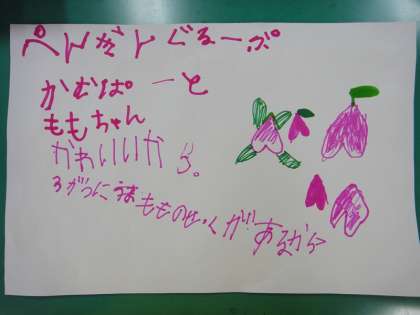 ぺんぎんぐるーぷ
かむぱーと
ももちゃん
かわいいから。
3がつにうまもものせっくがあるから